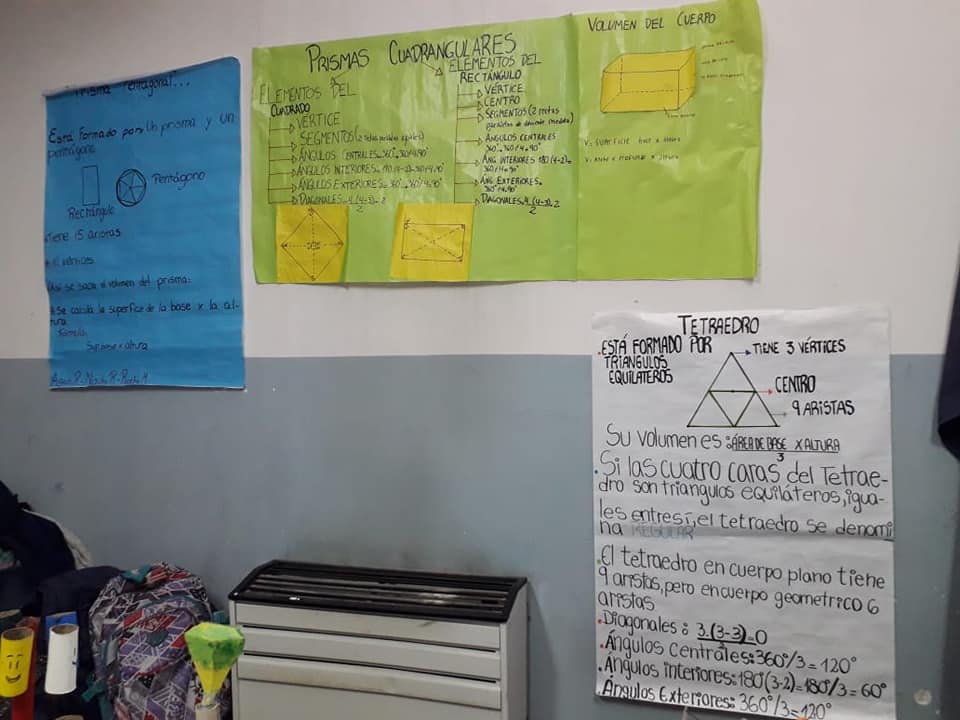 Prisma Pentagonal...
Está formado por: Un prisma y un
pentágono
Pentágono
Rectángulo
Tiene 15 aristas
vértices
Así se saca el volumen del prisma:
Se calcula la superficie de la base x la al-
tura
Fórmula:
Sup. base x altura
PRISMAS CUADRANGULARES
ELEMENTOS DEL
CUADRADO
VÉRTICE
SEGMENTOS (2 rectas paralelas iguales)
ÁNGULOS CENTRALES= 360° 360/4=90°
ÁNGULOS INTERIORES=
ÁNGULOS EXTERIORES= 360° 360°/4=90°
DIAGONALES= 4.(4-3)= 2
2
ELEMENTOS DEL
RECTÁNGULO
VÉRTICE
CENTRO
SEGMENTOS (2 rectas
paralelas de distinta medida)
ÁNGULOS CENTRALES
360° 360/4=90°
ANG INTERIORES 180(4-2)=
360/4=90°
ANG EXTERIORES=
360°/4=90°
DIAGONALES= 4.(4-3)= 2
2
VOLUMEN DEL CUERPO
V= SUPERFICIE base x altura
V= x x altura
TETRAEDRO
.ESTÁ FORMADO POR
TRIANGULOS
EQUILATEROS
TIENE 3 VÉRTICES
CENTRO
9 ARISTAS
Su volumen es: ÁREA DE BASE X ALTURA
3
.Si las cuatro caras del Tetrae-
dro son triangulos equiláteros, igua-
les entre sí, el tetraedro se denomi
na REGULAR
.El tetraedro en cuerpo plano tiene
9 aristas, pero en cuerpo geometrico 6
aristas
.Diagonales: 3.(3-3)=0
2
.Ángulos centrales: 360°/3=120°
.Ángulos interiores: 180°(3-2)=180°/3=60°
.Ángulos Exteriores: 360°/3=120°